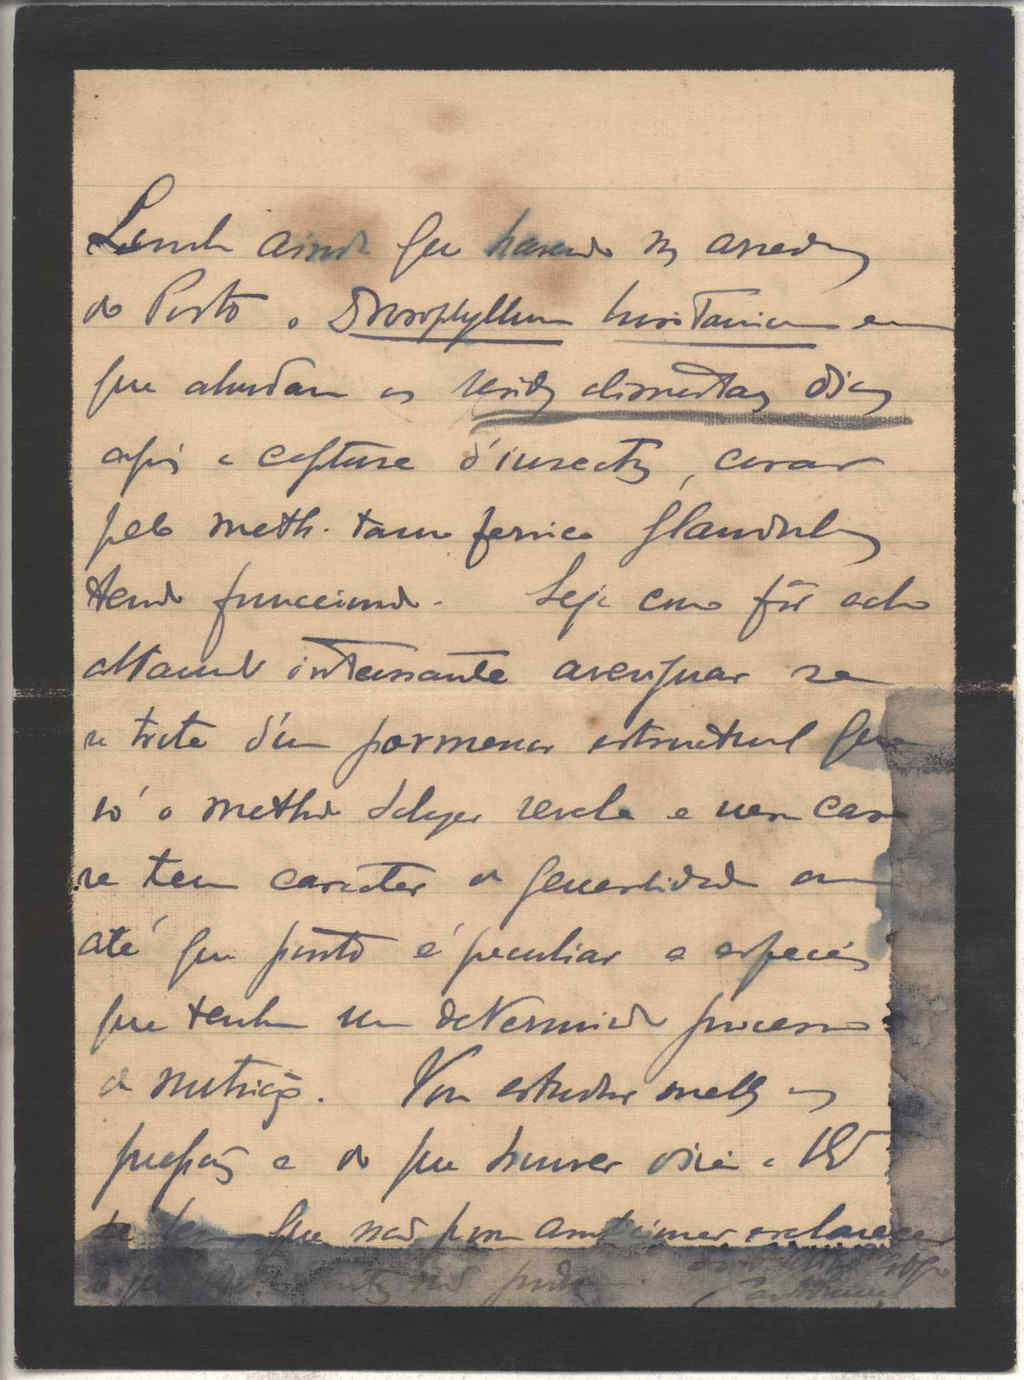 Lembro ainda que havendo nos arredores
do Porto o Drosophyllum lusitanicum em
que abundam os residuos alimentares dias
após a captura d'insectos, corar
pelo meth. tano ferrico glandulas
tendo funccionado. Seja como fôr acho
altamente interessante averiguar se
se trata d'um pormenor estructural que
só o methodo revela e nesse caso
se tem caracter de generalidade ou
até que ponto é peculiar a especies
que tenham um determinado processo
de nutrição. Vou estudar melhor as
preparações e do que houver direi a VEx
que não possa esclarecer
não